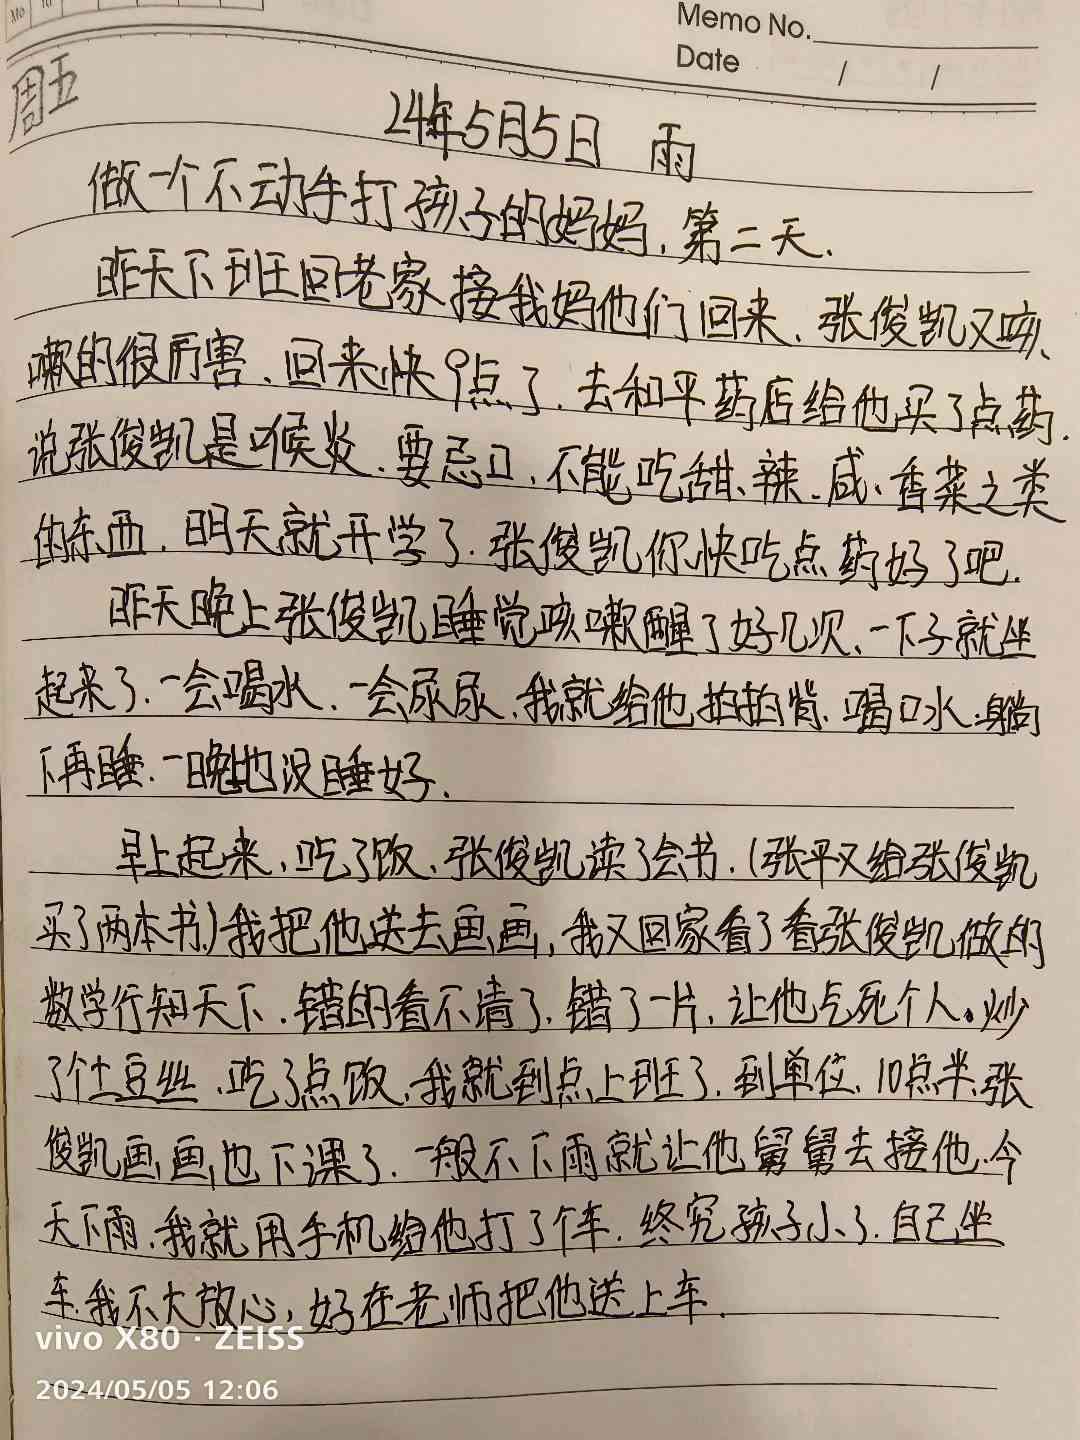 Mo Tu
Memo No.
Date / /
周五
24年5月5日 雨
做一个不动手打孩子的妈妈，第二天.
昨天下班回老家接我妈他们回来、张俊凯又咳、
嗽的很厉害、回来快9点了.去和平药店给他买了点药.
说张俊凯是喉炎.要忌口、不能吃甜、辣.咸、香菜之类
的东西.明天就开学了.张俊凯你快吃点药好了吧.
昨天晚上张俊凯睡觉咳嗽醒了好几次、一下子就坐
起来了.一会喝水.一会尿尿.我就给他拍拍背.喝口水.躺
下再睡.一晚也没睡好.
早上起来，吃了饭、张俊凯读了会书.(张平又给张俊凯
买了两本书)我把他送去画画，我又回家看了看张俊凯做的
数学行知天下.错的看不清了.错了一片，让他气死个人.炒
了个土豆丝.吃了点饭，我就到点上班了.到单位.10点半.张
俊凯画画也下课了.一般不下雨就让他舅舅去接他.今
天下雨.我就用手机给他打了个车.终究孩子小了.自己坐
车.我不大放心，好在老师把他送上车.
vivo X80 · ZEISS
2024/05/05 12:06